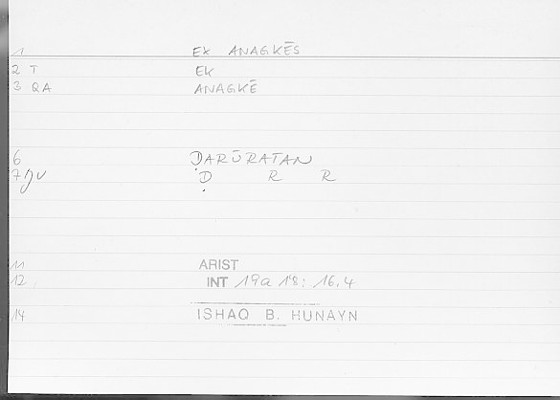 1 EX ANAGKĒS
2 T EK
3 QA ANAGKĒ
6 ḌARŪRATAN
7 JV Ḍ R R
11 ARIST
12 INT 19a 18; 16.4
14 ISHAQ B. HUNAYN